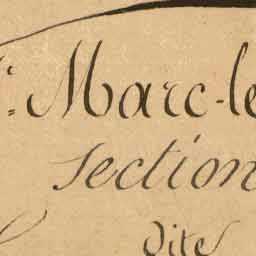 Marc-le
Section
Dite